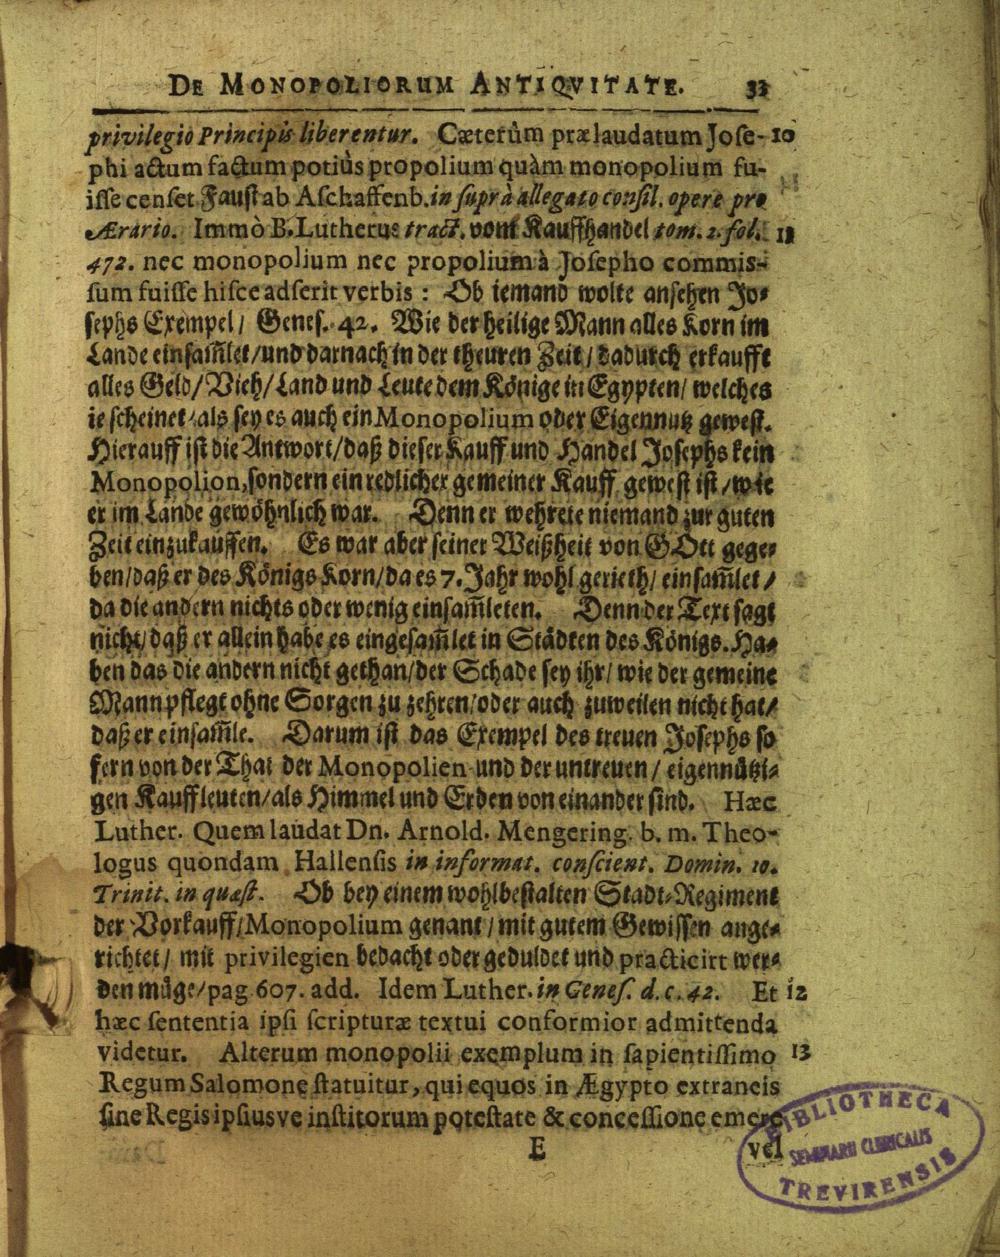 DE MONOPOLIORUM ANTIQVITATE. 33
privilegio Principis liberentur. Cæterùm prælaudatum Jose- 10
phi actum factum potiùs propolium quàm monopolium fu-
isse censet Faust ab Aschaffenb. in suprà allegato consil. opere pro
Ærario. Immò B. Lutherus tract. vom Kauffhandel tom. 2. fol. 11
472. nec monopolium nec propolium à Josepho commis-
sum fuisse hisce adserit verbis : Ob iemand wolte ansehen Jo-
sephs Exempel / Genes. 42. Wie der heilige Mann alles Korn im
Lande einsam̃let / und darnach in der theuren Zeit / dadurch erkaufft
alles Geld / Vieh / Land und Leute dem Könige in Egypten / welches
ie scheinet / als sey es auch ein Monopolium oder Eigennutz gewest.
Hierauff ist die Antwort / daß dieser Kauff und Handel Josephs kein
Monopolion, sondern ein redlicher gemeiner Kauff gewest ist / wie
er im Lande gewöhnlich war. Denn er wehrete niemand zur guten
Zeit einzukauffen. Es war aber seiner Weißheit von GOtt gege-
ben / daß er des Königs Korn / da es 7. Jahr wohl gerieth / einsam̃let /
da die andern nichts oder wenig einsam̃leten. Denn der Text sagt
nicht / daß er allein habe es eingesam̃let in Städten des Königs. Ha-
ben das die andern nicht gethan / der Schade sey ihr / wie der gemeine
Mann pflegt ohne Sorgen zu zehren / oder auch zuweilen nicht hat /
daß er einsam̃le. Darum ist das Exempel des treuen Josephs so
fern von der That der Monopolien und der untreuen / eigennützi-
gen Kauffleuten / als Himmel und Erden von einander sind. Hæc
Luther. Quem laudat Dn. Arnold. Mengering. b. m. Theo-
logus quondam Hallensis in informat. conscient. Domin. 10.
Trinit. in quæst. Ob bey einem wohlbestalten Stadt-Regiment
der Vorkauff / Monopolium genant / mit gutem Gewissen ange-
richtet / mit privilegien bedacht oder geduldet und practicirt wer-
den müge / pag. 607. add. Idem Luther. in Genes. d. c. 42. Et 12
hæc sententia ipsi scripturæ textui conformior admittenda
videtur. Alterum monopolii exemplum in sapientissimo 13
Regum Salomone statuitur, qui equos in Ægypto extraneis
sine Regis ipsiusve institorum potestate & concessione emere
E vel
BIBLIOTHECA
SEMINARII CLERICALIS
TREVIRENSIS